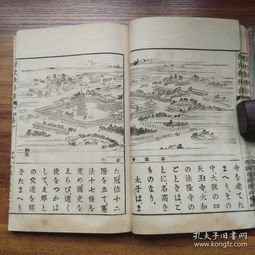 寺を建てた
まへりその
中大阪の四
天王寺大和
の法隆寺の
ごときはこ
とに名高き
ものなり。
太子はま
た冠位十二
階を立て憲
法十七條を
定め國史を
えらび遠く
使をつかは
して支那と
の交通を開
きたまへり
孔夫子旧书网